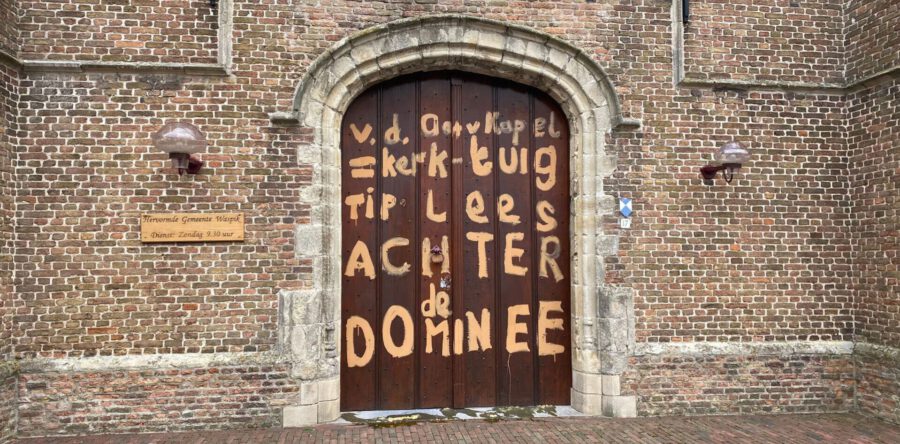 v.d. v Kapel
= kerk-tuig
TIP Lees
ACHTER
de
DOMINEE
Hervormde Gemeente Waspik
Dienst: Zondag 9.30 uur
17